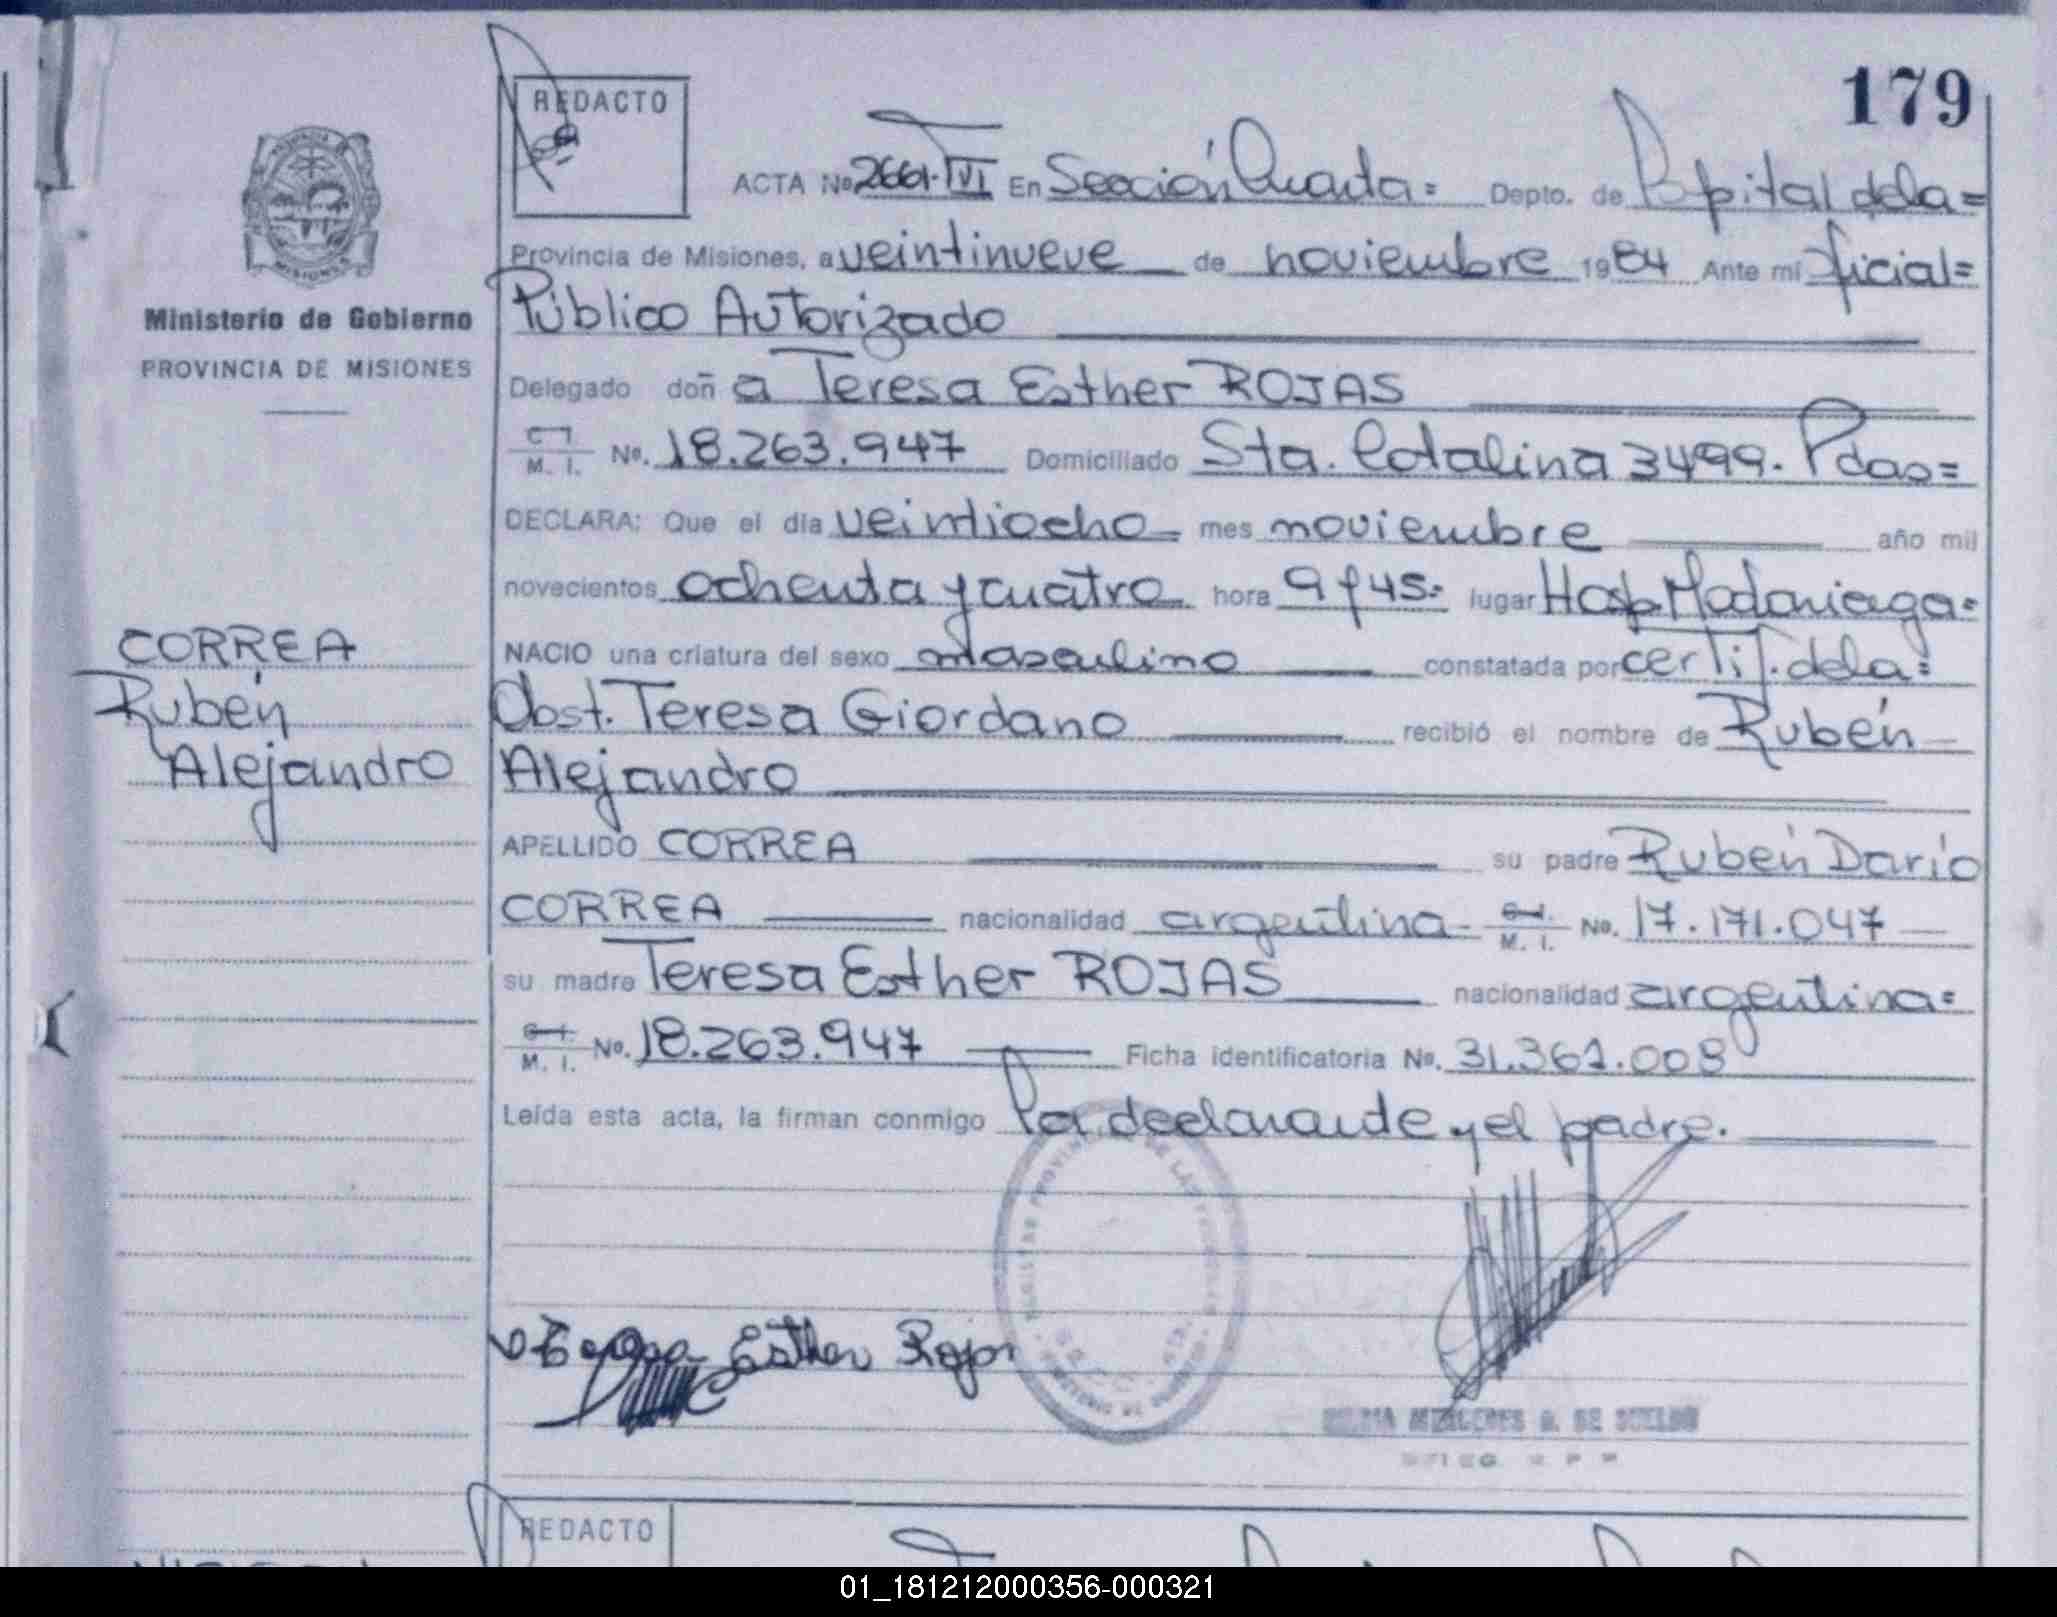 179
REDACTO
ACTA Nº 2661. T VI En Sección Cuarta= Depto. de Cpital dela=
Provincia de Misiones, a veintinueve de noviembre 1984 Ante mi Oficial=
Público Autorizado
Delegado doñ a Teresa Esther ROJAS
M. I. Nº. 18.263.947 Domiciliado Sta. Catalina 3499. Pdas=
DECLARA: Que el día veintiocho= mes noviembre año mil
novecientos ochenta y cuatro hora 9 y 45= lugar Hosp. Madariaga=
NACIO una criatura del sexo masculino constatada por certif. dela=
Obst. Teresa Giordano recibió el nombre de Rubén
Alejandro
APELLIDO CORREA su padre Rubén Darío
CORREA nacionalidad argentina- M. I. Nº. 17.171.047
su madre Teresa Esther ROJAS nacionalidad argentina=
M. I. Nº. 18.263.947 Ficha identificatoria Nº. 31.361.008
Leída esta acta, la firman conmigo la declarante y el padre.
Esther Rojas
Ministerio de Gobierno
PROVINCIA DE MISIONES
CORREA
Rubén
Alejandro
REDACTO
01_181212000356-000321